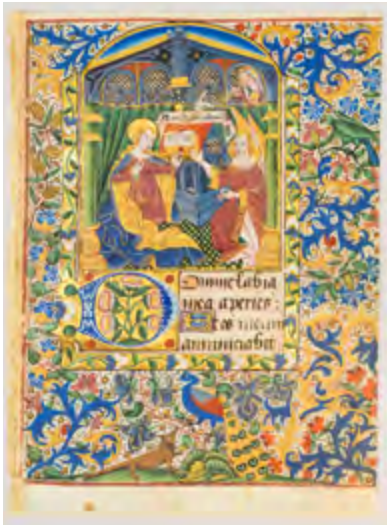 Domine labia
mea aperies:
et os meum
annunciabit